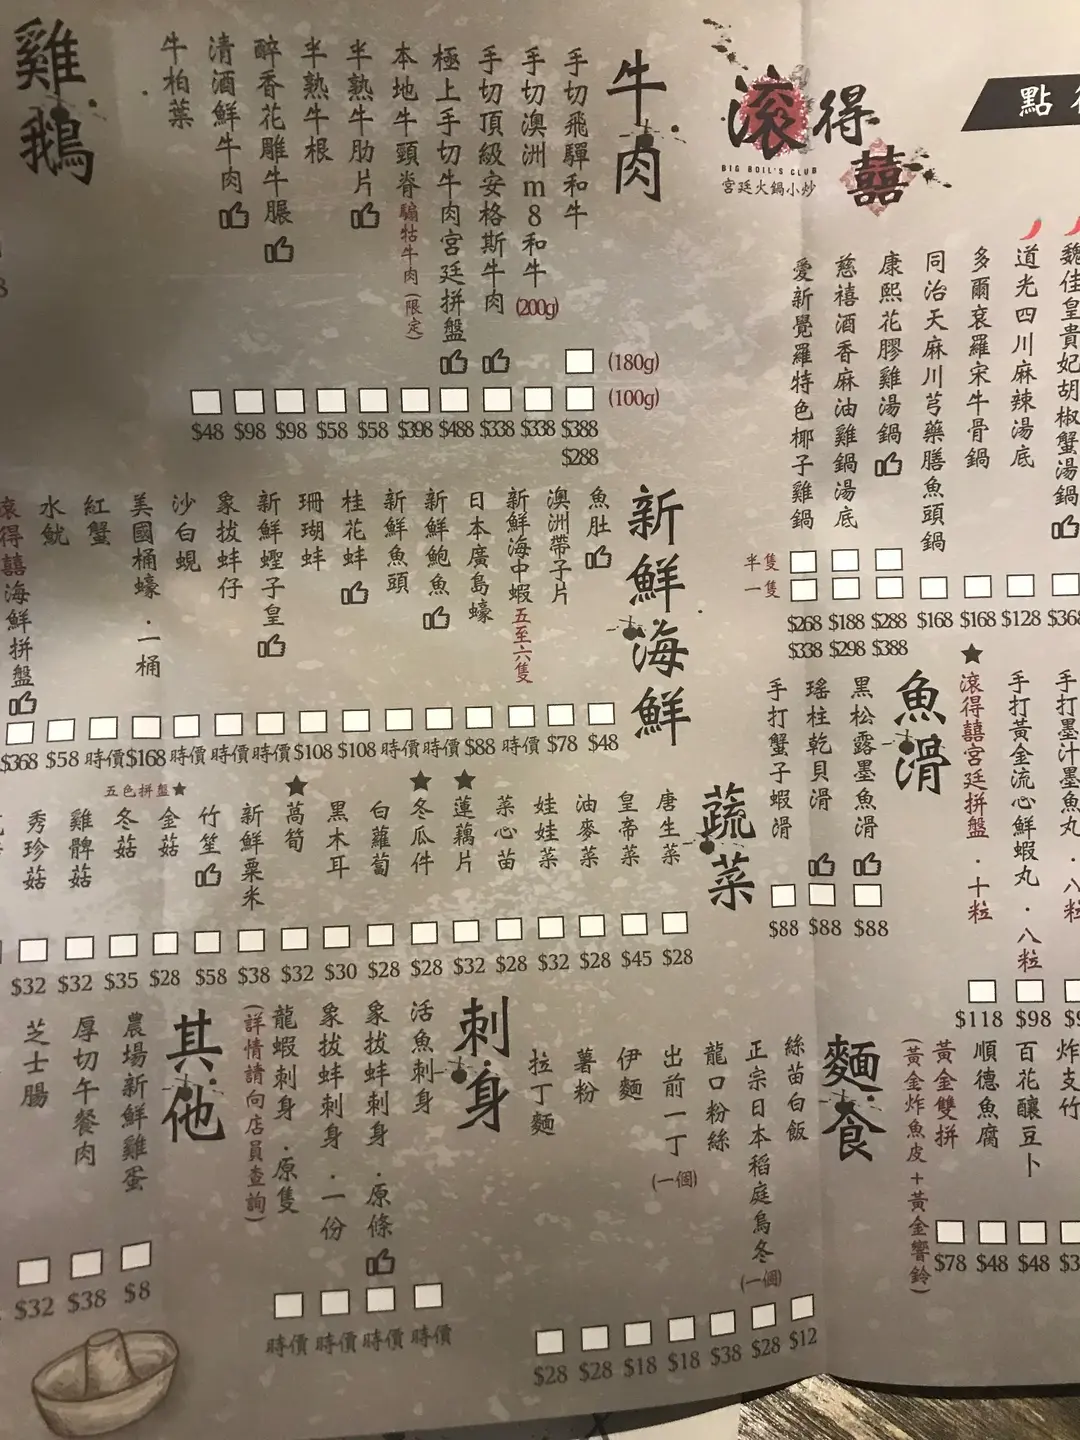 點
滾得囍
BIG BOIL'S CLUB
宮廷火鍋小炒
魏佳皇貴妃胡椒蟹湯鍋
道光四川麻辣湯底
多爾袞羅宋牛骨鍋
同治天麻川芎藥膳魚頭鍋
康熙花膠雞湯鍋
慈禧酒香麻油雞鍋湯底
愛新覺羅特色椰子雞鍋
半隻
一隻
$268 $188 $288 $168 $168 $128 $368
$338 $298 $388
牛肉
手切飛驒和牛
手切澳洲m8和牛(200g)
手切頂級安格斯牛肉
極上手切牛肉宮廷拼盤
本地牛頸脊騸牯牛肉(限定)
半熟牛肋片
半熟牛根
醉香花雕牛𦟌
清酒鮮牛肉
牛柏葉
(180g)
(100g)
$48 $98 $98 $58 $58 $398 $488 $338 $338 $388
$288
雞
鵝
新鮮海鮮
魚肚
澳洲帶子片
新鮮海中蝦五至六隻
日本廣島蠔
新鮮鮑魚
新鮮魚頭
桂花蚌
珊瑚蚌
新鮮蟶子皇
象拔蚌仔
沙白蜆
美國桶蠔．一桶
紅蟹
水魷
滾得囍海鮮拼盤
$368 $58 時價 $168 時價 時價 時價 $108 $108 時價 時價 $88 時價 $78 $48
魚滑
黑松露墨魚滑
瑤柱乾貝滑
手打蟹子蝦滑
$88 $88 $88
手打墨汁墨魚丸．八粒
手打黃金流心鮮蝦丸．八粒
滾得囍宮廷拼盤．十粒
$118 $98
蔬菜
唐生菜
皇帝菜
油麥菜
娃娃菜
菜心苗
蓮藕片
冬瓜件
白蘿蔔
黑木耳
萵筍
新鮮粟米
竹笙
金菇
冬菇
雞髀菇
秀珍菇
五色拼盤★
$32 $32 $35 $28 $58 $38 $32 $30 $28 $28 $32 $28 $32 $28 $45 $28
炸支竹
百花釀豆卜
順德魚腐
黃金雙拼
(黃金炸魚皮+黃金響鈴)
$78 $48 $48
麵食
絲苗白飯
正宗日本稻庭烏冬(一個)
龍口粉絲
出前一丁(一個)
伊麵
薯粉
拉丁麵
$28 $28 $18 $18 $38 $28 $12
刺身
活魚刺身
象拔蚌刺身．原條
象拔蚌刺身．一份
龍蝦刺身．原隻
(詳情請向店員查詢)
時價 時價 時價 時價
其他
農場新鮮雞蛋
厚切午餐肉
芝士腸
$32 $38 $8